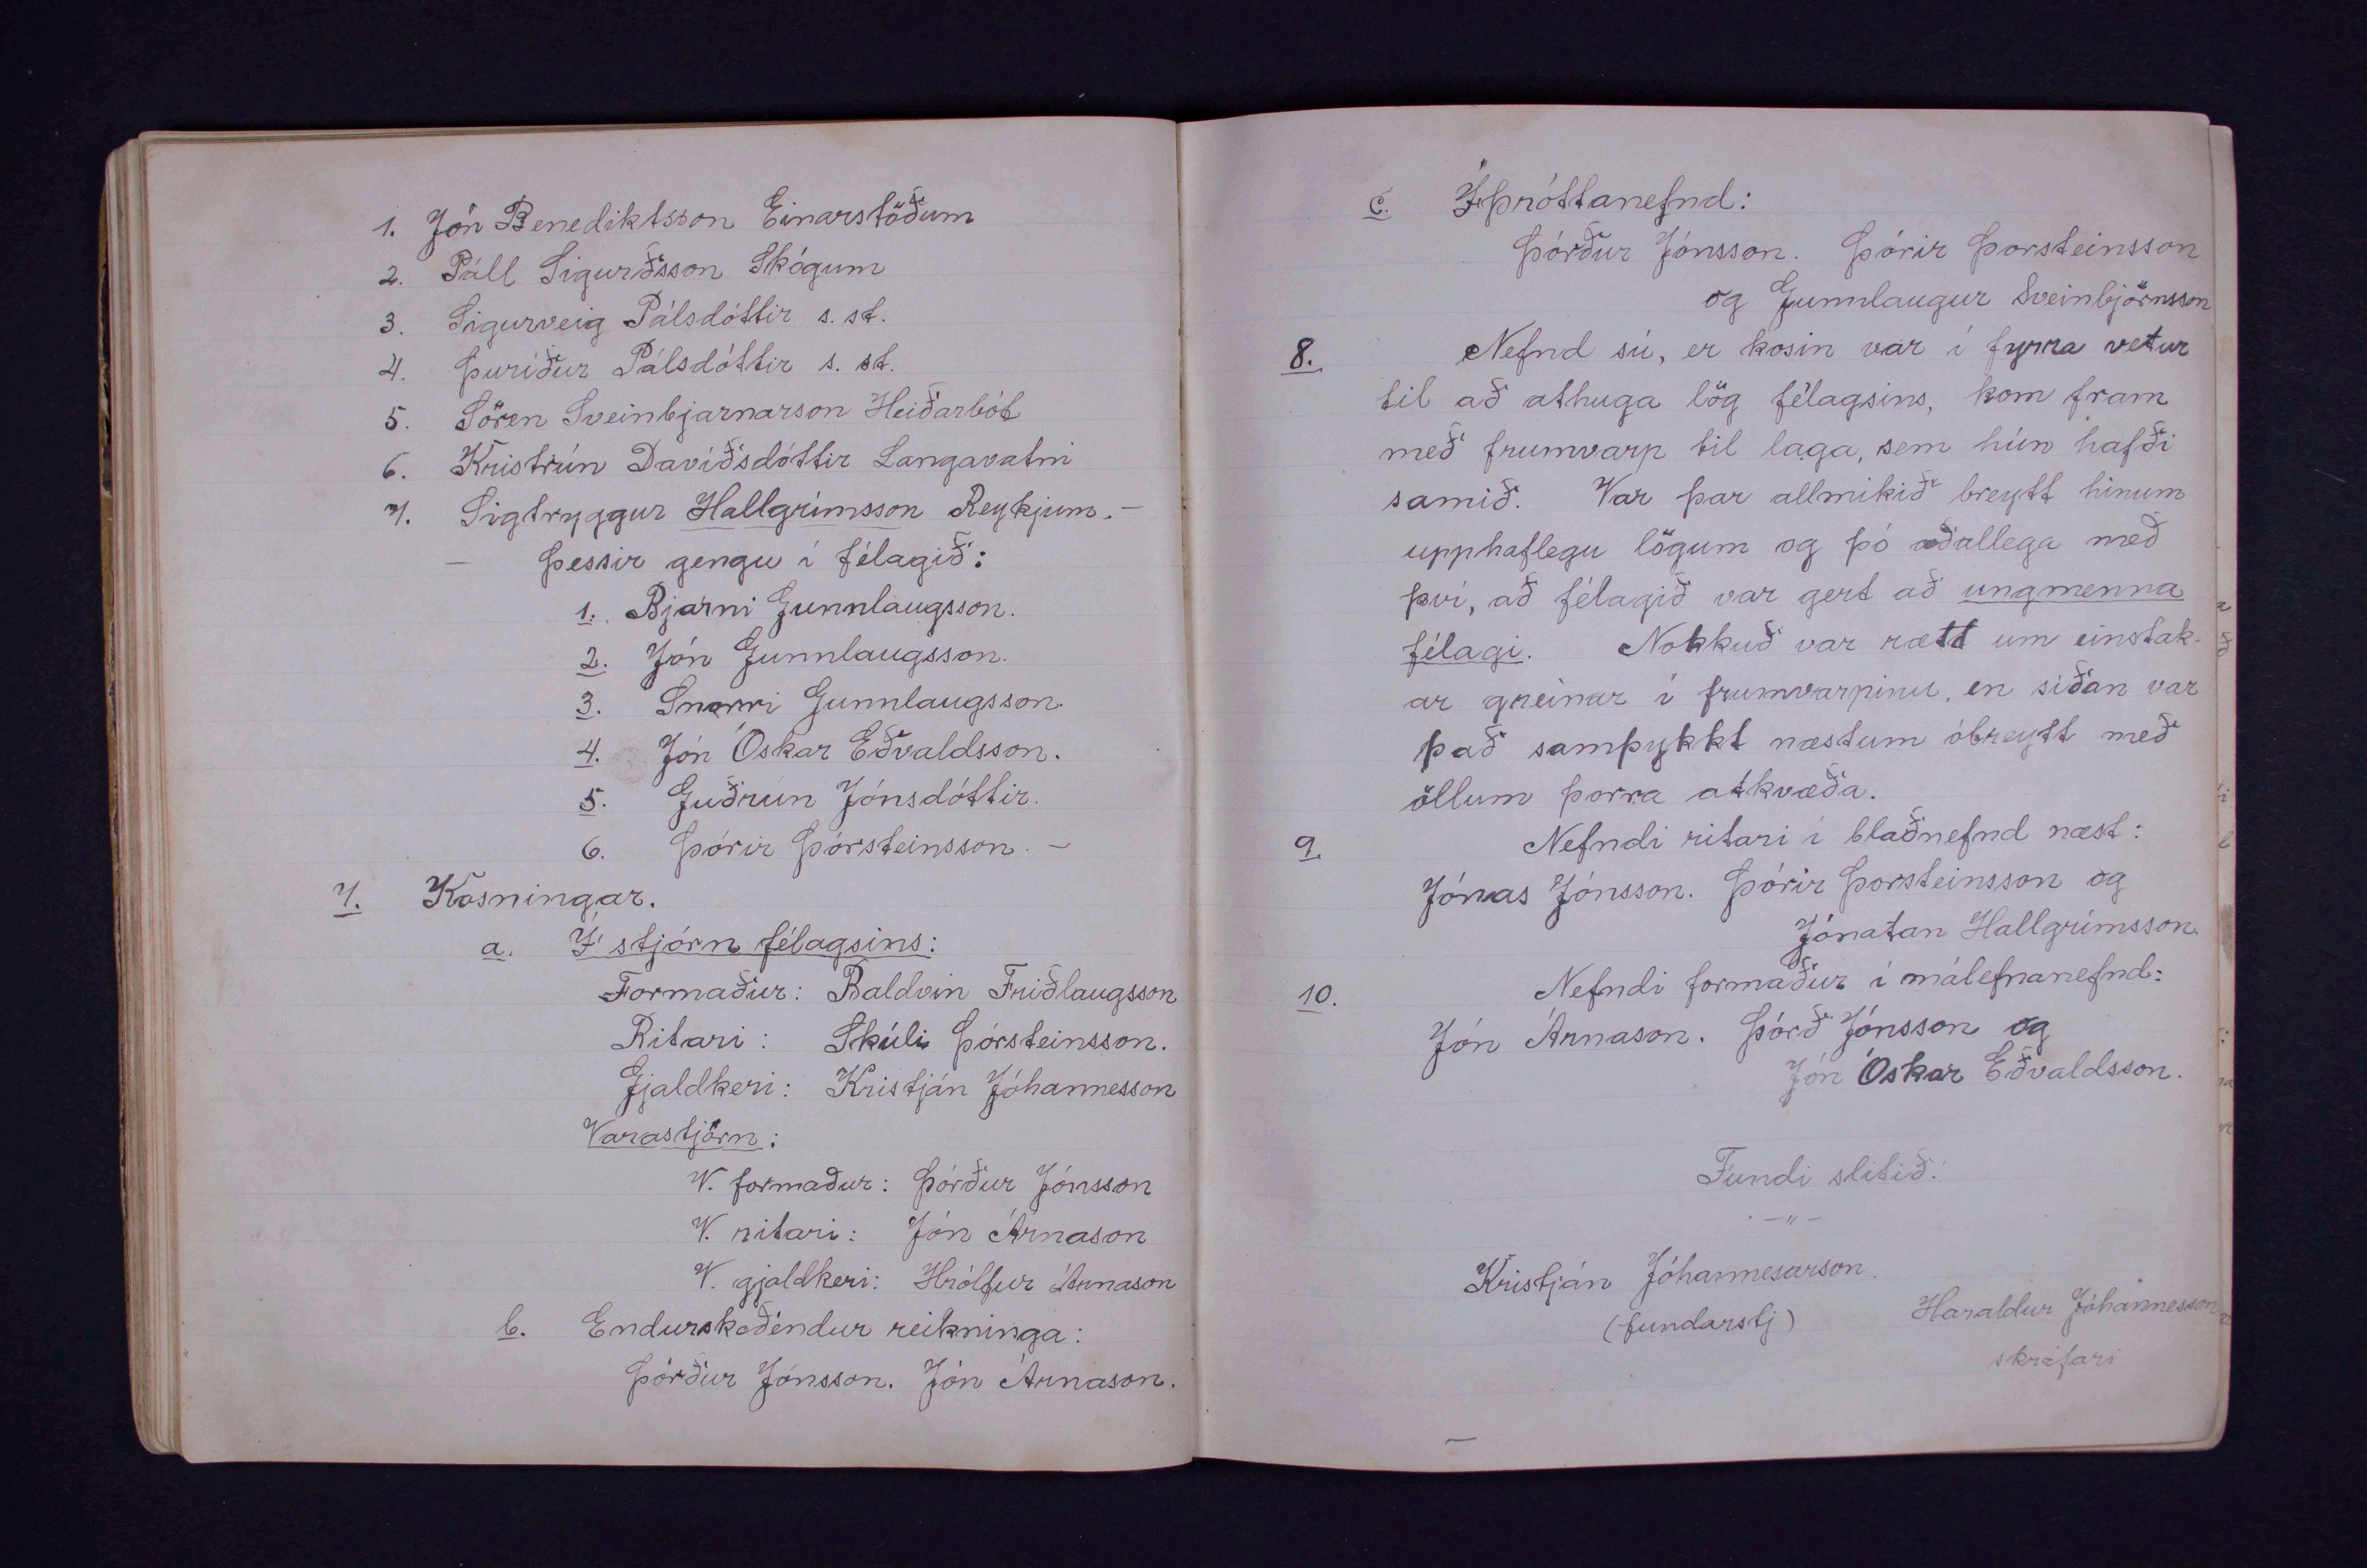 1. Jón Benediktsson Einarstöðum
2. Páll Sigurðsson Skógum
3. Sigurveig Pálsdóttir s. st.
4. Þuríður Pálsdóttir s. st.
5. Sören Sveinbjarnarson Heiðarbót
6. Kristrún Davíðsdóttir Langavatni
7. Sigtryggur Hallgrímsson Reykjum. –
– Þessir gengu í félagið:
1. Bjarni Gunnlaugsson.
2. Jón Gunnlaugsson.
3. Snorri Gunnlaugsson.
4. Jón Óskar Eðvaldsson.
5. Guðrún Jónsdóttir.
6. Þórir Þórsteinsson. –
7. Kosningar.
a. Í stjórn félagsins:
Formaður: Baldvin Friðlaugsson
Ritari: Skúli Þórsteinsson.
Gjaldkeri: Kristján Jóhannesson
Varastjórn:
V. formaður: Þórður Jónsson
V. ritari: Jón Árnason
V. gjaldkeri: Hrólfur Árnason
b. Endurskoðendur reikninga:
Þórður Jónsson. Jón Árnason.
c. Íþróttanefnd:
Þórður Jónsson. Þórir Þorsteinsson
og Gunnlaugur Sveinbjörnsson
8. Nefnd sú, er kosin var í fyrra vetur
til að athuga lög félagsins, kom fram
með frumvarp til laga, sem hún hafði
samið. Var þar allmikið breytt hinum
upphaflegu lögum og þó aðallega með
því, að félagið var gert að ungmenna
félagi. Nokkuð var rætt um einstak-
ar greinar í frumvarpinu, en síðan var
það samþykkt næstum óbreytt með
öllum þorra atkvæða.
9. Nefndi ritari í blaðnefnd næst:
Jónas Jónsson. Þórir Þorsteinsson og
Jónatan Hallgrímsson.
10. Nefndi formaður í málefnanefnd:
Jón Árnason. Þórð Jónsson og
Jón Óskar Eðvaldsson.
Fundi slitið.
–"–
Kristján Jóhannesarson.
(fundarstj)
Haraldur Jóhannesson
skrifari